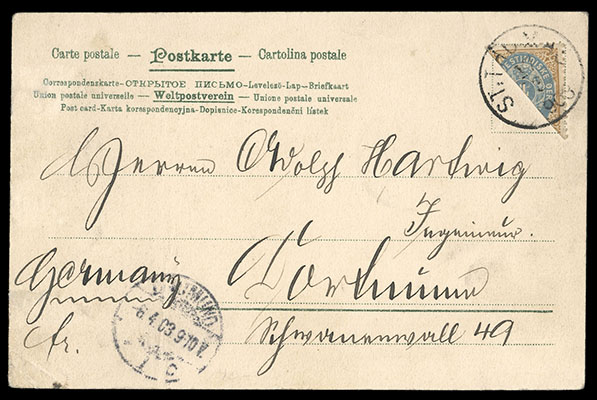 Carte postale — Postkarte — Cartolina postale
Correspondenzkarte–ОТКРЫТОЕ ПИСЬМО–Levelező-Lap–Briefkaart
Union postale universelle — Weltpostverein — Unione postale universale
Post card–Karta korespondencyjna–Dopisnice–Korespondenční lístek
ST. THOMAS
Herrn Adolf Hartwig
Ingenieur.
Germany Dortmund
DORTMUND
6.4.03.9-10V.
fr. Schwanenwall 49